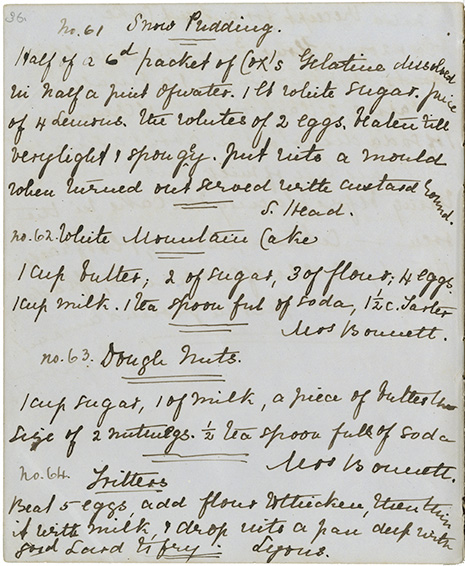 36.
no. 61 Snow Pudding.
Half of a 6d packet of Cox's Gelatine dissolved
in half a pint of water. 1 lb white sugar. Juice
of 4 Lemons. The whites of 2 eggs. Beaten till
very light & spongy. Put into a mould
when turned out served with custard round.
S. Head.
no. 62. White Mountain Cake
1 cup butter, 2 of sugar, 3 of flour, 4 eggs.
1 cup milk. 1 tea spoon ful of soda, 1½ c. Tarter
Mrs Bonnett.
no. 63. Dough Nuts.
1 cup sugar, 1 of milk, a piece of butter the
size of 2 nutmegs. ½ tea spoon full of soda
Mrs Bonnett.
no. 64. Fritters
Beat 5 eggs, add flour to thicken, then thin
it with milk, & drop into a pan deep with
good Lard to fry. Lyons.